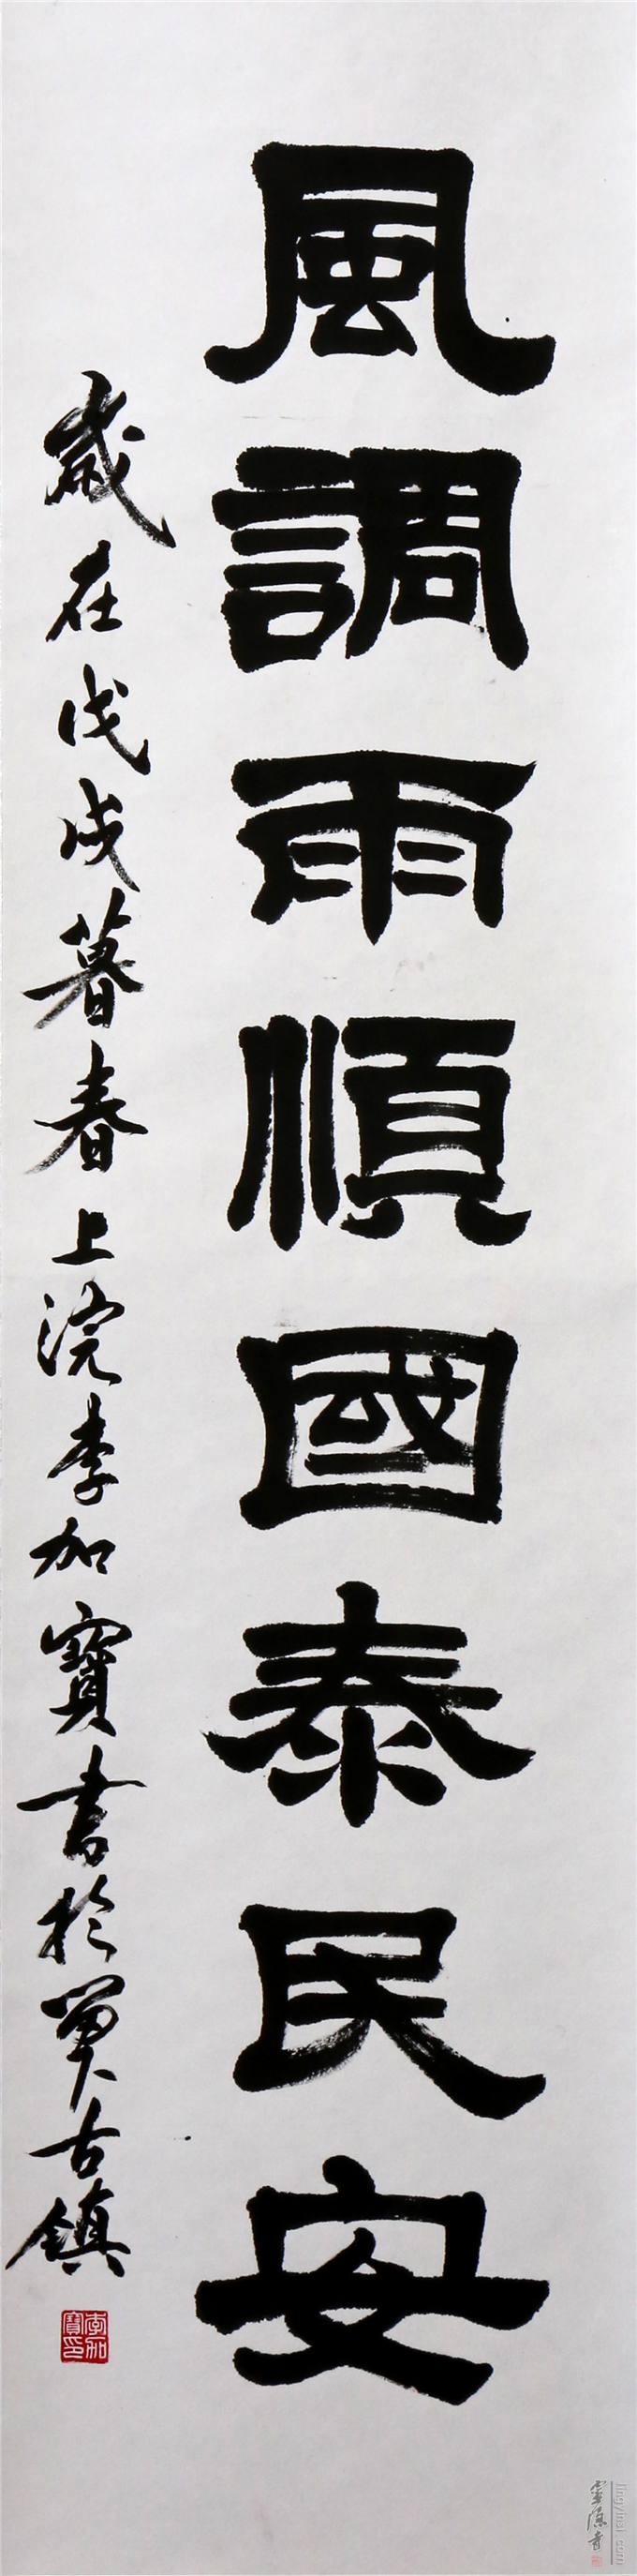 風調雨順國泰民安
歲在戊戌暮春上浣李加寶書於古鎮
李加寶印
lingyinsi.com